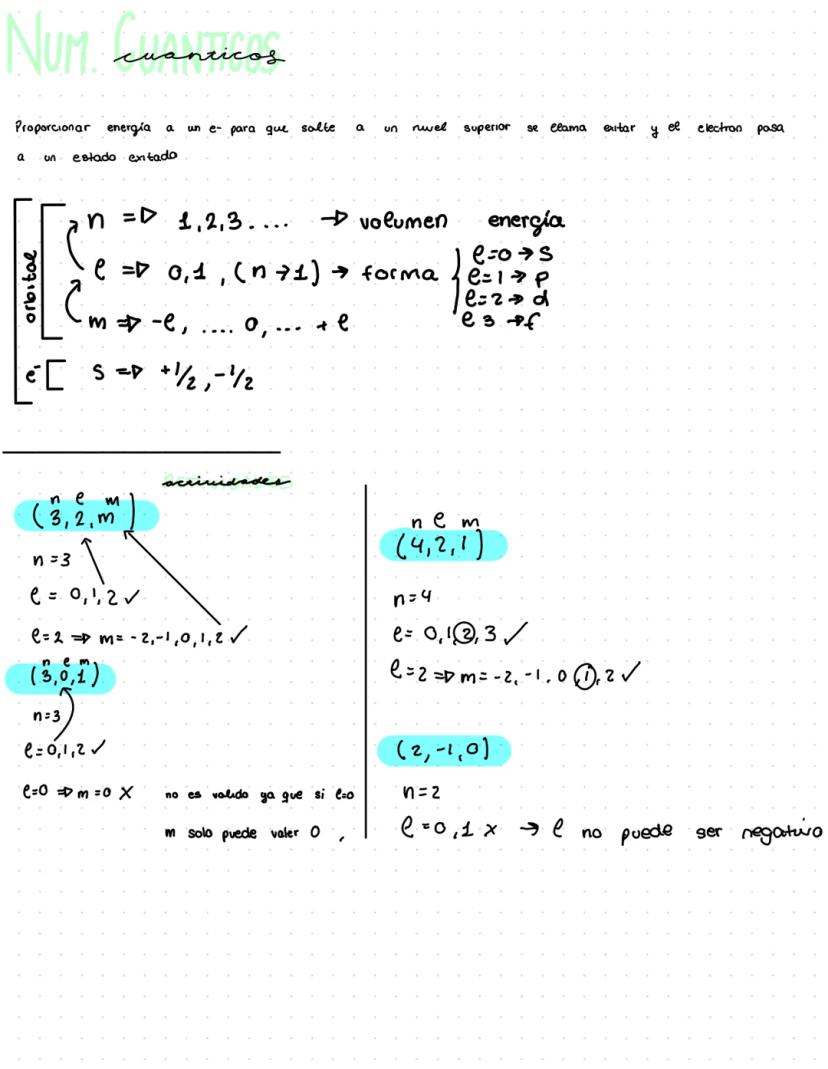 NUM. CUANTICOS
cuanticos
Proporcionar energía a un e- para que salte a un nivel superior se llama exitar y el electron pasa
a un estado exitado
orbital
n => 1,2,3.... → volumen energía
l => 0,1, (n→1) → forma
l=0 → s
l=1 → p
l=2 → d
l 3 → f
m => -l, .... 0, ... + l
e- [ s => +1/2, -1/2
actividades
n l m
(3,2,m)
n=3
l = 0,1,2 ✓
l=2 => m= -2,-1,0,1,2 ✓
n e m
(3,0,1)
n=3
l=0,1,2 ✓
l=0 => m=0 X no es valido ya que si l=0
m solo puede valer 0 ,
n l m
(4,2,1)
n=4
l= 0,1,2,3 ✓
l=2 => m= -2, -1, 0,1,2 ✓
(2,-1,0)
n=2
l=0,1 x → l no puede ser negativo